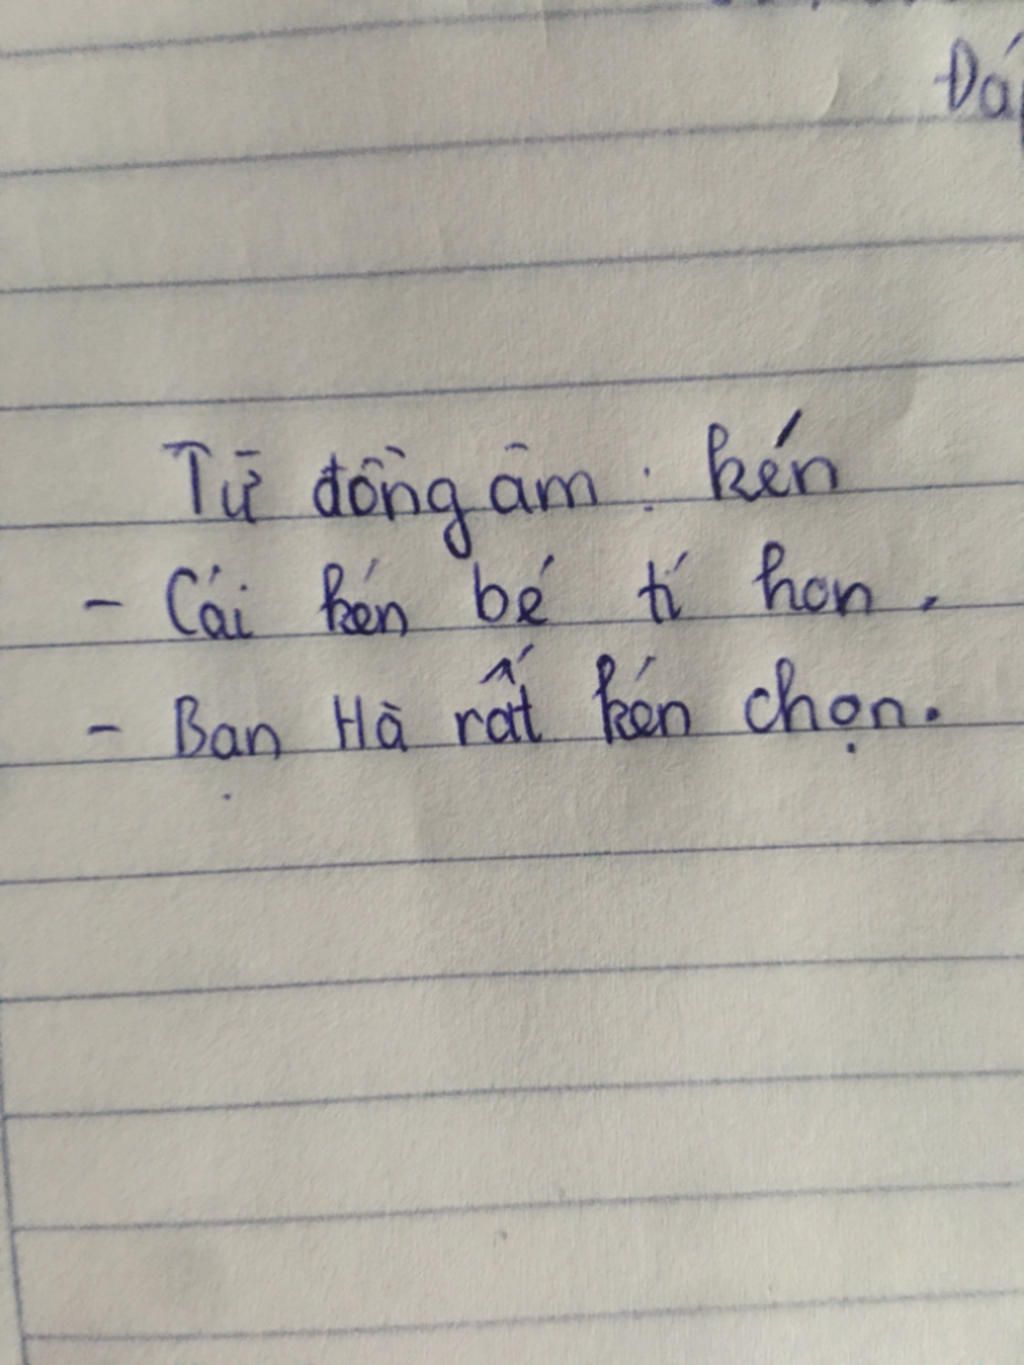 Đá
Từ đồng âm : kén
- Cái kén bé tí hon.
- Bạn Hà rất kén chọn.